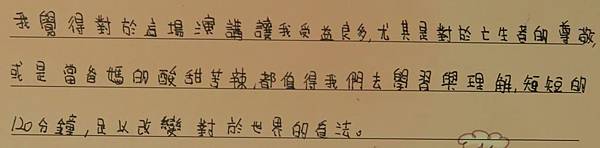 我覺得對於這場演講讓我受益良多,尤其是對於亡生者的尊敬,
或是當爸媽的酸甜苦辣,都值得我們去學習與理解,短短的
120分鐘,足以改變對於世界的看法。